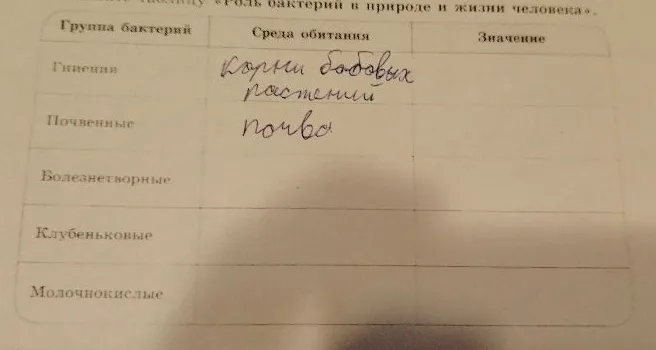 таблицу «Роль бактерий в природе и жизни человека».
Группа бактерий Среда обитания Значение
Гниения корни бобовых
растений
Почвенные почва
Болезнетворные
Клубеньковые
Молочнокислые